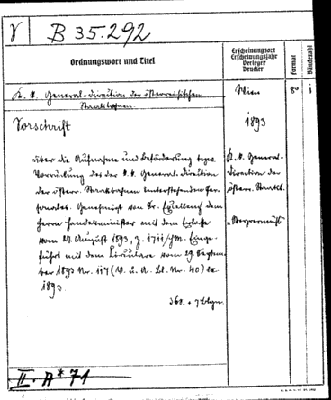 B 35.292
Ordnungswort und Titel
Erscheinungsort
Erscheinungsjahr
Verleger
Drucker
Format
Bändezahl
K. K. General-Direction der österreichischen
Staatsbahnen
Wien
8°
1
Vorschrift
1893
über die Aufnahme und Beförderung
Vorrückung des der k. k. General-Direction
der österr. Staatsbahnen unterstehenden Per-
sonales. Genehmigt von Sr. Excellenz dem
Herrn Handelsminister mit dem Erlasse
vom August 1893, Z. Einge-
führt mit dem Circulare vom 29 Septem-
ber 1893 Nr. 117 (V. L. A. Bl. Nr. 40) ex
1893.
K. K. General-
Direction der
österr. Staatsb.
36 S. + 7 Blgen.
II. A* 71